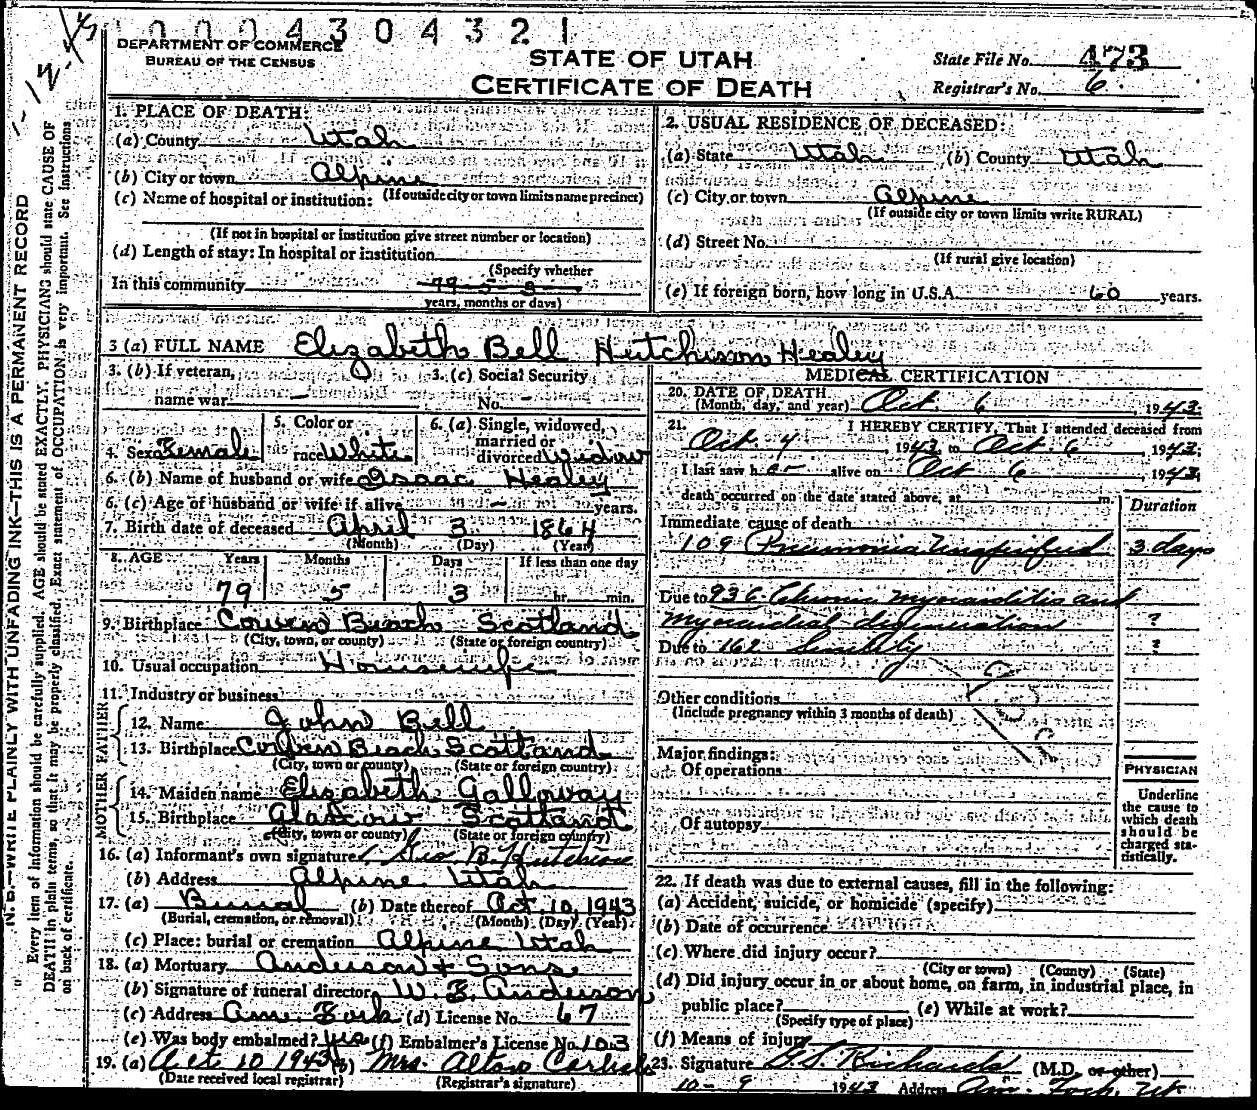 0 0 0 4 3 0 4 3 2 1
DEPARTMENT OF COMMERCE
BUREAU OF THE CENSUS
STATE OF UTAH
CERTIFICATE OF DEATH
State File No. 473
Registrar's No. 6.
N. B.—WRITE PLAINLY WITH UNFADING INK—THIS IS A PERMANENT RECORD
Every item of information should be carefully supplied. AGE should be stated EXACTLY. PHYSICIANS should state CAUSE OF
DEATH in plain terms, so that it may be properly classified. Exact statement of OCCUPATION is very important. See instructions
on back of certificate.
1. PLACE OF DEATH:
(a) County Utah
(b) City or town Alpine
(If outside city or town limits name precinct)
(c) Name of hospital or institution:
(If not in hospital or institution give street number or location)
(d) Length of stay: In hospital or institution
(Specify whether
In this community 79-5-3
years, months or days)
2. USUAL RESIDENCE OF DECEASED:
(a) State Utah (b) County Utah
(c) City or town Alpine
(If outside city or town limits write RURAL)
(d) Street No.
(If rural give location)
(e) If foreign born, how long in U.S.A. 60 years.
3 (a) FULL NAME Elizabeth Bell Hutchison Healey
3. (b) If veteran,
name war –
3. (c) Social Security
No. –
4. Sex Female
5. Color or
race White
6. (a) Single, widowed,
married or
divorced Widow
6. (b) Name of husband or wife Isaac Healey
6. (c) Age of husband or wife if alive – years.
7. Birth date of deceased April 3 1864
(Month) (Day) (Year)
8. AGE Years Months Days If less than one day
79 5 3 hr. min.
9. Birthplace Cowen Beach Scotland
(City, town, or county) (State or foreign country)
10. Usual occupation Housewife
11. Industry or business
FATHER
12. Name John Bell
13. Birthplace Cowen Beach Scotland
(City, town or county) (State or foreign country)
MOTHER
14. Maiden name Elizabeth Galloway
15. Birthplace Glascow Scotland
(City, town or county) (State or foreign country)
16. (a) Informant's own signature Geo B. Hutchison
(b) Address Alpine Utah
17. (a) Burial (b) Date thereof Oct. 10, 1943
(Burial, cremation, or removal) (Month) (Day) (Year)
(c) Place: burial or cremation Alpine Utah
18. (a) Mortuary Anderson & Sons
(b) Signature of funeral director W. E. Anderson
(c) Address Am. Fork (d) License No. 67
(e) Was body embalmed? Yes (f) Embalmer's License No. 103
19. (a) Oct 10 1943 (b) Mrs. Alton Carlisle
(Date received local registrar) (Registrar's signature)
MEDICAL CERTIFICATION
20. DATE OF DEATH
(Month, day, and year) Oct. 6, 1943
21. I HEREBY CERTIFY, That I attended deceased from
Oct 4, 1943 to Oct. 6, 1943;
I last saw her alive on Oct 6, 1943;
death occurred on the date stated above, at m.
Duration
Immediate cause of death
109 Pneumonia Unspecified 3 days
Due to 93c Chronic myocarditis and
Myocardial degeneration ?
Due to 162 Senility ?
Other conditions
(Include pregnancy within 3 months of death)
Major findings:
Of operations
Of autopsy
PHYSICIAN
Underline
the cause to
which death
should be
charged sta-
tistically.
22. If death was due to external causes, fill in the following:
(a) Accident, suicide, or homicide (specify)
(b) Date of occurrence
(c) Where did injury occur?
(City or town) (County) (State)
(d) Did injury occur in or about home, on farm, in industrial place, in
public place? (e) While at work?
(Specify type of place)
(f) Means of injury
23. Signature G. S. Richards (M.D. or other)
10-9 1943 Address Am. Fork, Ut